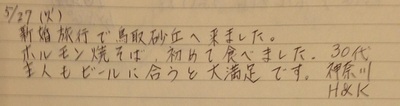 5/27 (火)
新婚旅行で鳥取砂丘へ来ました。
ホルモン焼そば、初めて食べました。 30代
主人もビールに合うと大満足です。 神奈川
H&K